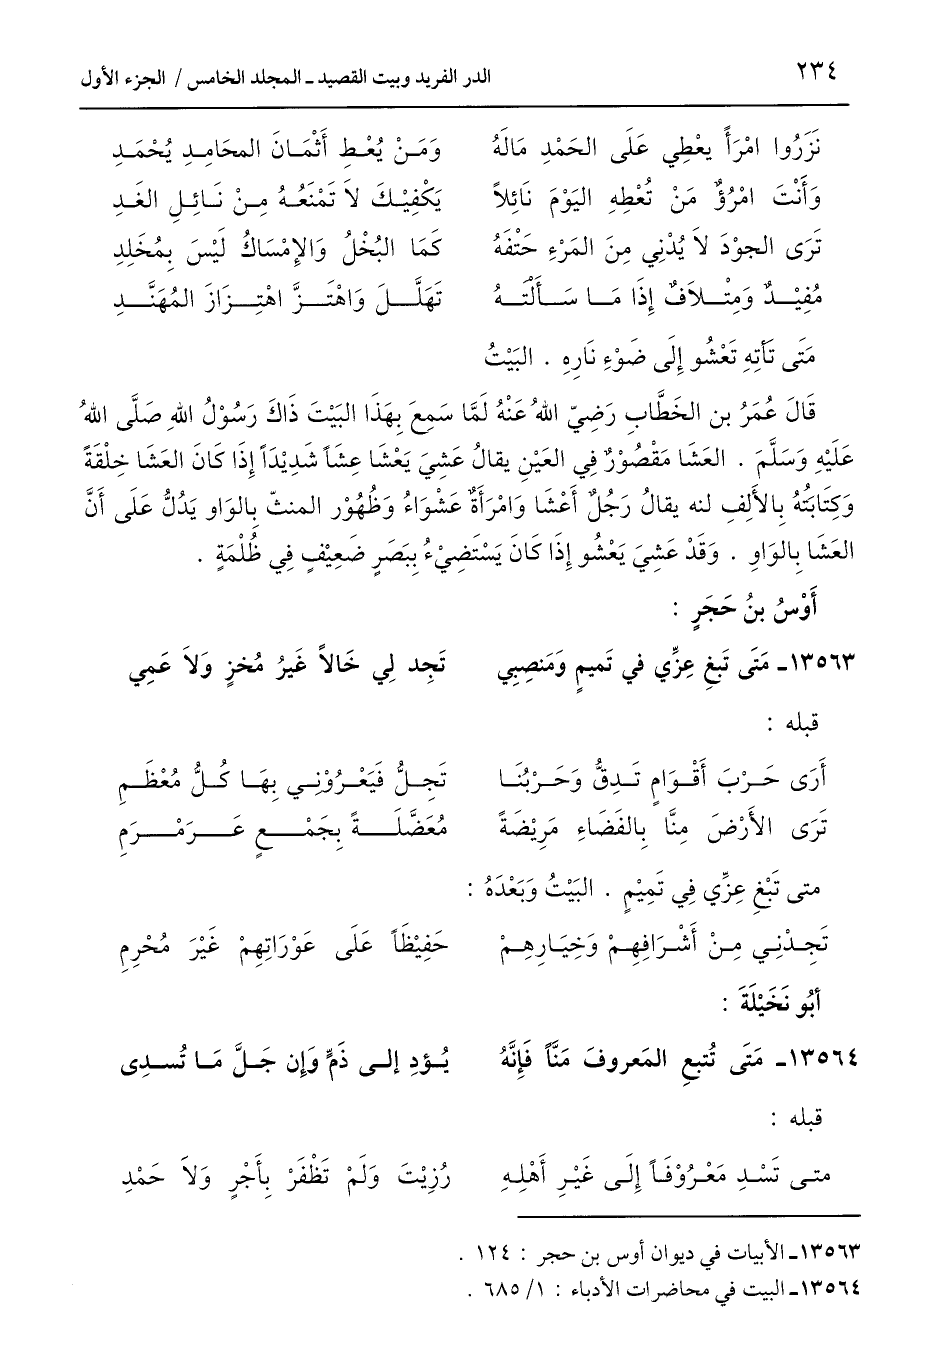 ٢٣٤ الدر الفريد وبيت القصيد ـ المجلد الخامس / الجزء الأول
نَزَرُوا امْرَأً يعْطِي عَلَى الحَمْدِ مَالَهُ وَمَنْ يُعْطِ أَثْمَانَ المحَامِدِ يُحْمَدِ
وَأَنْتَ امْرُؤٌ مَنْ تُعْطِهِ اليَوْمَ نَائِلاً يَكْفِيْكَ لاَ تَمْنَعُهُ مِنْ نَائِلِ الغَدِ
تَرَى الجوْدَ لاَ يُدْنِي مِنَ المَرْءِ حَتْفَهُ كَمَا البُخْلُ وَالإِمْسَاكُ لَيْسَ بِمُخَلِدِ
مُفِيْدٌ وَمِتْلاَفٌ إِذَا مَا سَأَلْتَهُ تَهَلَّلَ وَاهْتَزَّ اهْتِزَازَ المُهَنَّدِ
مَتَى تَأتِهِ تَعْشُو إِلَى ضَوْءِ نَارِهِ . البَيْتُ
قَالَ عُمَرُ بن الخَطَّابِ رَضِيَ اللهُ عَنْهُ لَمَّا سَمِعَ بِهَذَا البَيْتَ ذَاكَ رَسُوْلُ اللهِ صَلَّى اللهُ
عَلَيْهِ وَسَلَّمَ . العَشَا مَقْصُوْرٌ فِي العَيْنِ يقالُ عَشِيَ يَعْشَا عِشَاً شَدِيْدَاً إِذَا كَانَ العَشَا خِلْقَةً
وَكِتَابَتُهُ بِالأَلِفِ لنه يقالُ رَجُلٌ أَعْشَا وَامْرَأَةٌ عَشْوَاءُ وَظُهُوْر المنثّ بِالوَاوِ يَدُلُّ عَلَى أَنَّ
العَشَا بِالوَاوِ . وَقَدْ عَشِيَ يَعْشُو إِذَا كَانَ يَسْتَضِيْءُ بِبَصَرٍ ضَعِيْفٍ فِي ظُلْمَةٍ .
أَوْسُ بنُ حَجَرٍ :
١٣٥٦٣ـ مَتَى تَبغِ عِزِّي في تَميمٍ وَمَنصِبِي تَجِد لِي خَالاً غَيرُ مُخزٍ وَلاَ عَمِي
قبله :
أَرَى حَرْبَ أَقْوَامٍ تَدِقُّ وَحَرْبُنَا تَجِلُّ فَيَعْرُوْنِي بِهَا كُلُّ مُعْظَمِ
تَرَى الأَرْضَ مِنَّا بِالفَضَاءِ مَرِيْضَةً مُعَضَّلَةً بِجَمْعٍ عَرَمْرَمِ
متى تَبْغِ عِزِّي فِي تَمِيْمٍ . البَيْتُ وَبَعْدَهُ :
تَجِدْنِي مِنْ أَشْرَافِهِمْ وَخِيَارِهِمْ حَفِيْظَاً عَلَى عَوْرَاتِهِمْ غَيْرَ مُحْرِمِ
أَبُو نَخَيْلَةَ :
١٣٥٦٤ـ مَتَى تُتبِعِ المَعروفَ مَنَّاً فَإِنَّهُ يُؤدِ إلى ذَمٍّ وَإِن جَلَّ مَا تُسدِى
قبله :
متى تَسْدِ مَعْرُوْفَاً إِلَى غَيْرِ أَهْلِهِ رُزِيْتَ وَلَمْ تَظْفَرْ بِأَجْرٍ وَلاَ حَمْدِ
١٣٥٦٣ـ الأبيات في ديوان أوس بن حجر : ١٢٤ .
١٣٥٦٤ـ البيت في محاضرات الأدباء : ١/ ٦٨٥ .